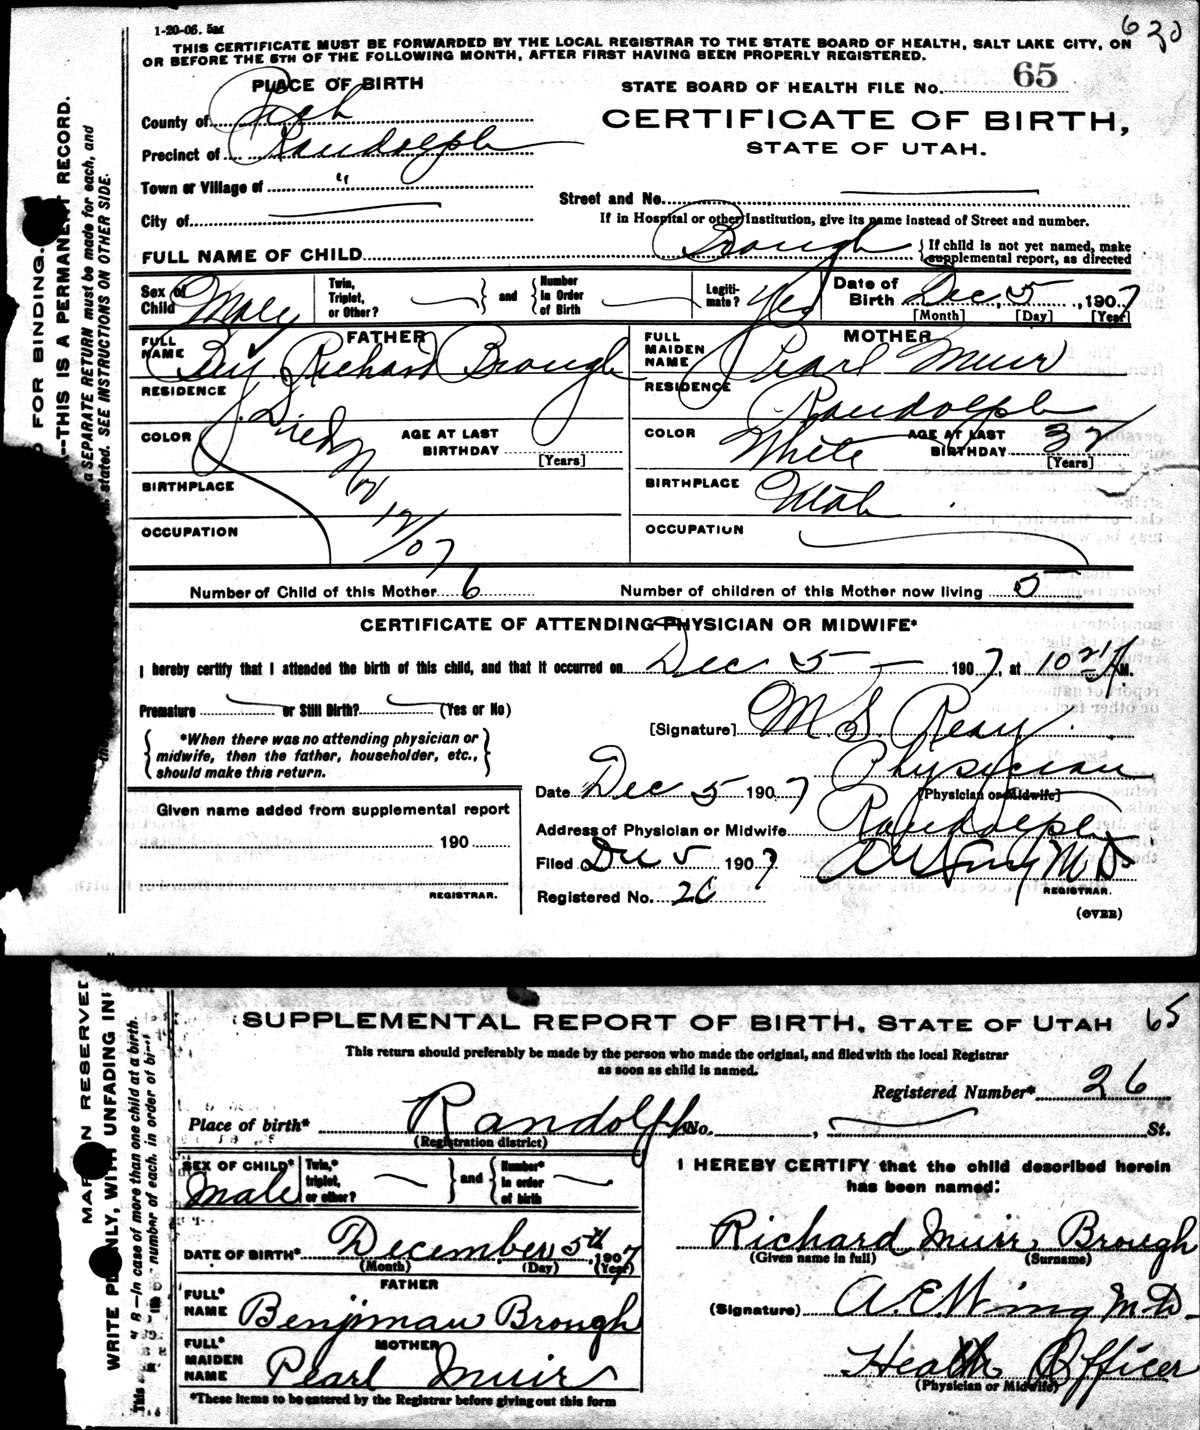 630
1-20-06. 5m
THIS CERTIFICATE MUST BE FORWARDED BY THE LOCAL REGISTRAR TO THE STATE BOARD OF HEALTH, SALT LAKE CITY, ON
OR BEFORE THE 5TH OF THE FOLLOWING MONTH, AFTER FIRST HAVING BEEN PROPERLY REGISTERED.
PLACE OF BIRTH
STATE BOARD OF HEALTH FILE No. 65
County of Rich
CERTIFICATE OF BIRTH,
Precinct of Randolph
STATE OF UTAH.
Town or Village of "
Street and No.
City of
If in Hospital or other Institution, give its name instead of Street and number.
FULL NAME OF CHILD Brough { If child is not yet named, make
supplemental report, as directed
Sex of Child Male
Twin, Triplet, or Other?
and
Number in Order of Birth
Legiti-mate? Yes
Date of Birth Dec, 5, 1907
[Month] [Day] [Year]
FATHER
FULL NAME Benj. Richard Brough
RESIDENCE
Died Nov 12/07
COLOR
AGE AT LAST BIRTHDAY
[Years]
BIRTHPLACE
OCCUPATION
MOTHER
FULL MAIDEN NAME Pearl Muir
RESIDENCE Randolph
COLOR White
AGE AT LAST BIRTHDAY 32
[Years]
BIRTHPLACE Utah
OCCUPATION
Number of Child of this Mother 6
Number of children of this Mother now living 5
CERTIFICATE OF ATTENDING PHYSICIAN OR MIDWIFE*
I hereby certify that I attended the birth of this child, and that it occurred on Dec 5 1907, at 10 M.
Premature or Still Birth? (Yes or No)
[Signature] M S Reay
*When there was no attending physician or
midwife, then the father, householder, etc.,
should make this return.
Physician
Date Dec 5 1907
[Physician or Midwife]
Given name added from supplemental report
190
REGISTRAR.
Address of Physician or Midwife Randolph
Filed Dec 5 1907 M D
REGISTRAR.
Registered No. 26
(OVER)
FOR BINDING.
--THIS IS A PERMANENT RECORD.
a SEPARATE RETURN must be made for each, and
stated. SEE INSTRUCTIONS ON OTHER SIDE.
SUPPLEMENTAL REPORT OF BIRTH, STATE OF UTAH 65
This return should preferably be made by the person who made the original, and filed with the local Registrar
as soon as child is named.
Registered Number* 26
Place of birth* Randolph No. , St.
(Registration district)
SEX OF CHILD* Male
Twin,* triplet, or other?
and
Number* in order of birth
DATE OF BIRTH* December 5th, 1907
(Month) (Day) (Year)
FATHER
FULL* NAME Benjiman Brough
MOTHER
FULL* MAIDEN NAME Pearl Muir
*These items to be entered by the Registrar before giving out this form
I HEREBY CERTIFY that the child described herein
has been named:
Richard Muir Brough
(Given name in full) (Surname)
(Signature) A. E. Wing M.D.
Health Officer
(Physician or Midwife)
RESERVED
WRITE PLAINLY, WITH UNFADING IN
B—In case of more than one child at a birth
number of each, in order of bi